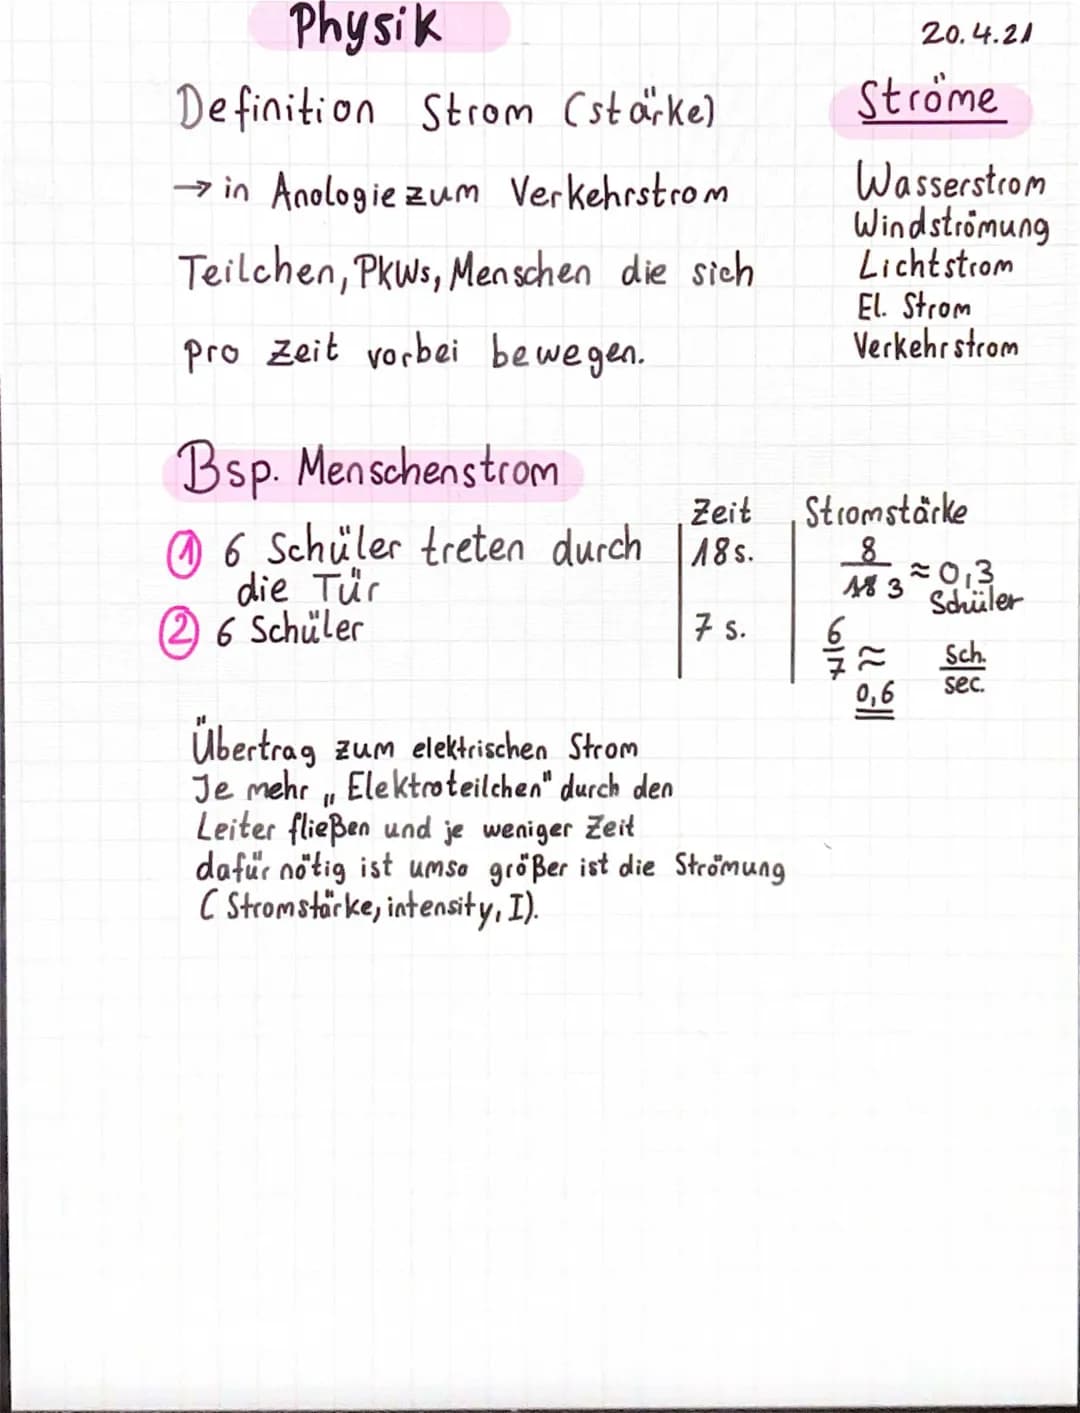 Physik
20.4.21
Definition Strom (stärke)
→ in Anologie zum Verkehrstrom
Teilchen, PKWs, Menschen die sich
pro Zeit vorbei bewegen.
Ströme
Wasserstrom
Windströmung
Lichtstrom
El. Strom
Verkehrstrom
Bsp. Menschenstrom
Zeit Stromstärke
① 6 Schüler treten durch 18s. 8/18 3 ≈ 0,3
die Tür Schüler
② 6 Schüler 7 s. 6/7 ≈ Sch./sec.
0,6
Übertrag zum elektrischen Strom
Je mehr „Elektroteilchen" durch den
Leiter fließen und je weniger Zeit
dafür nötig ist umso größer ist die Strömung
(Stromstärke, intensity, I).